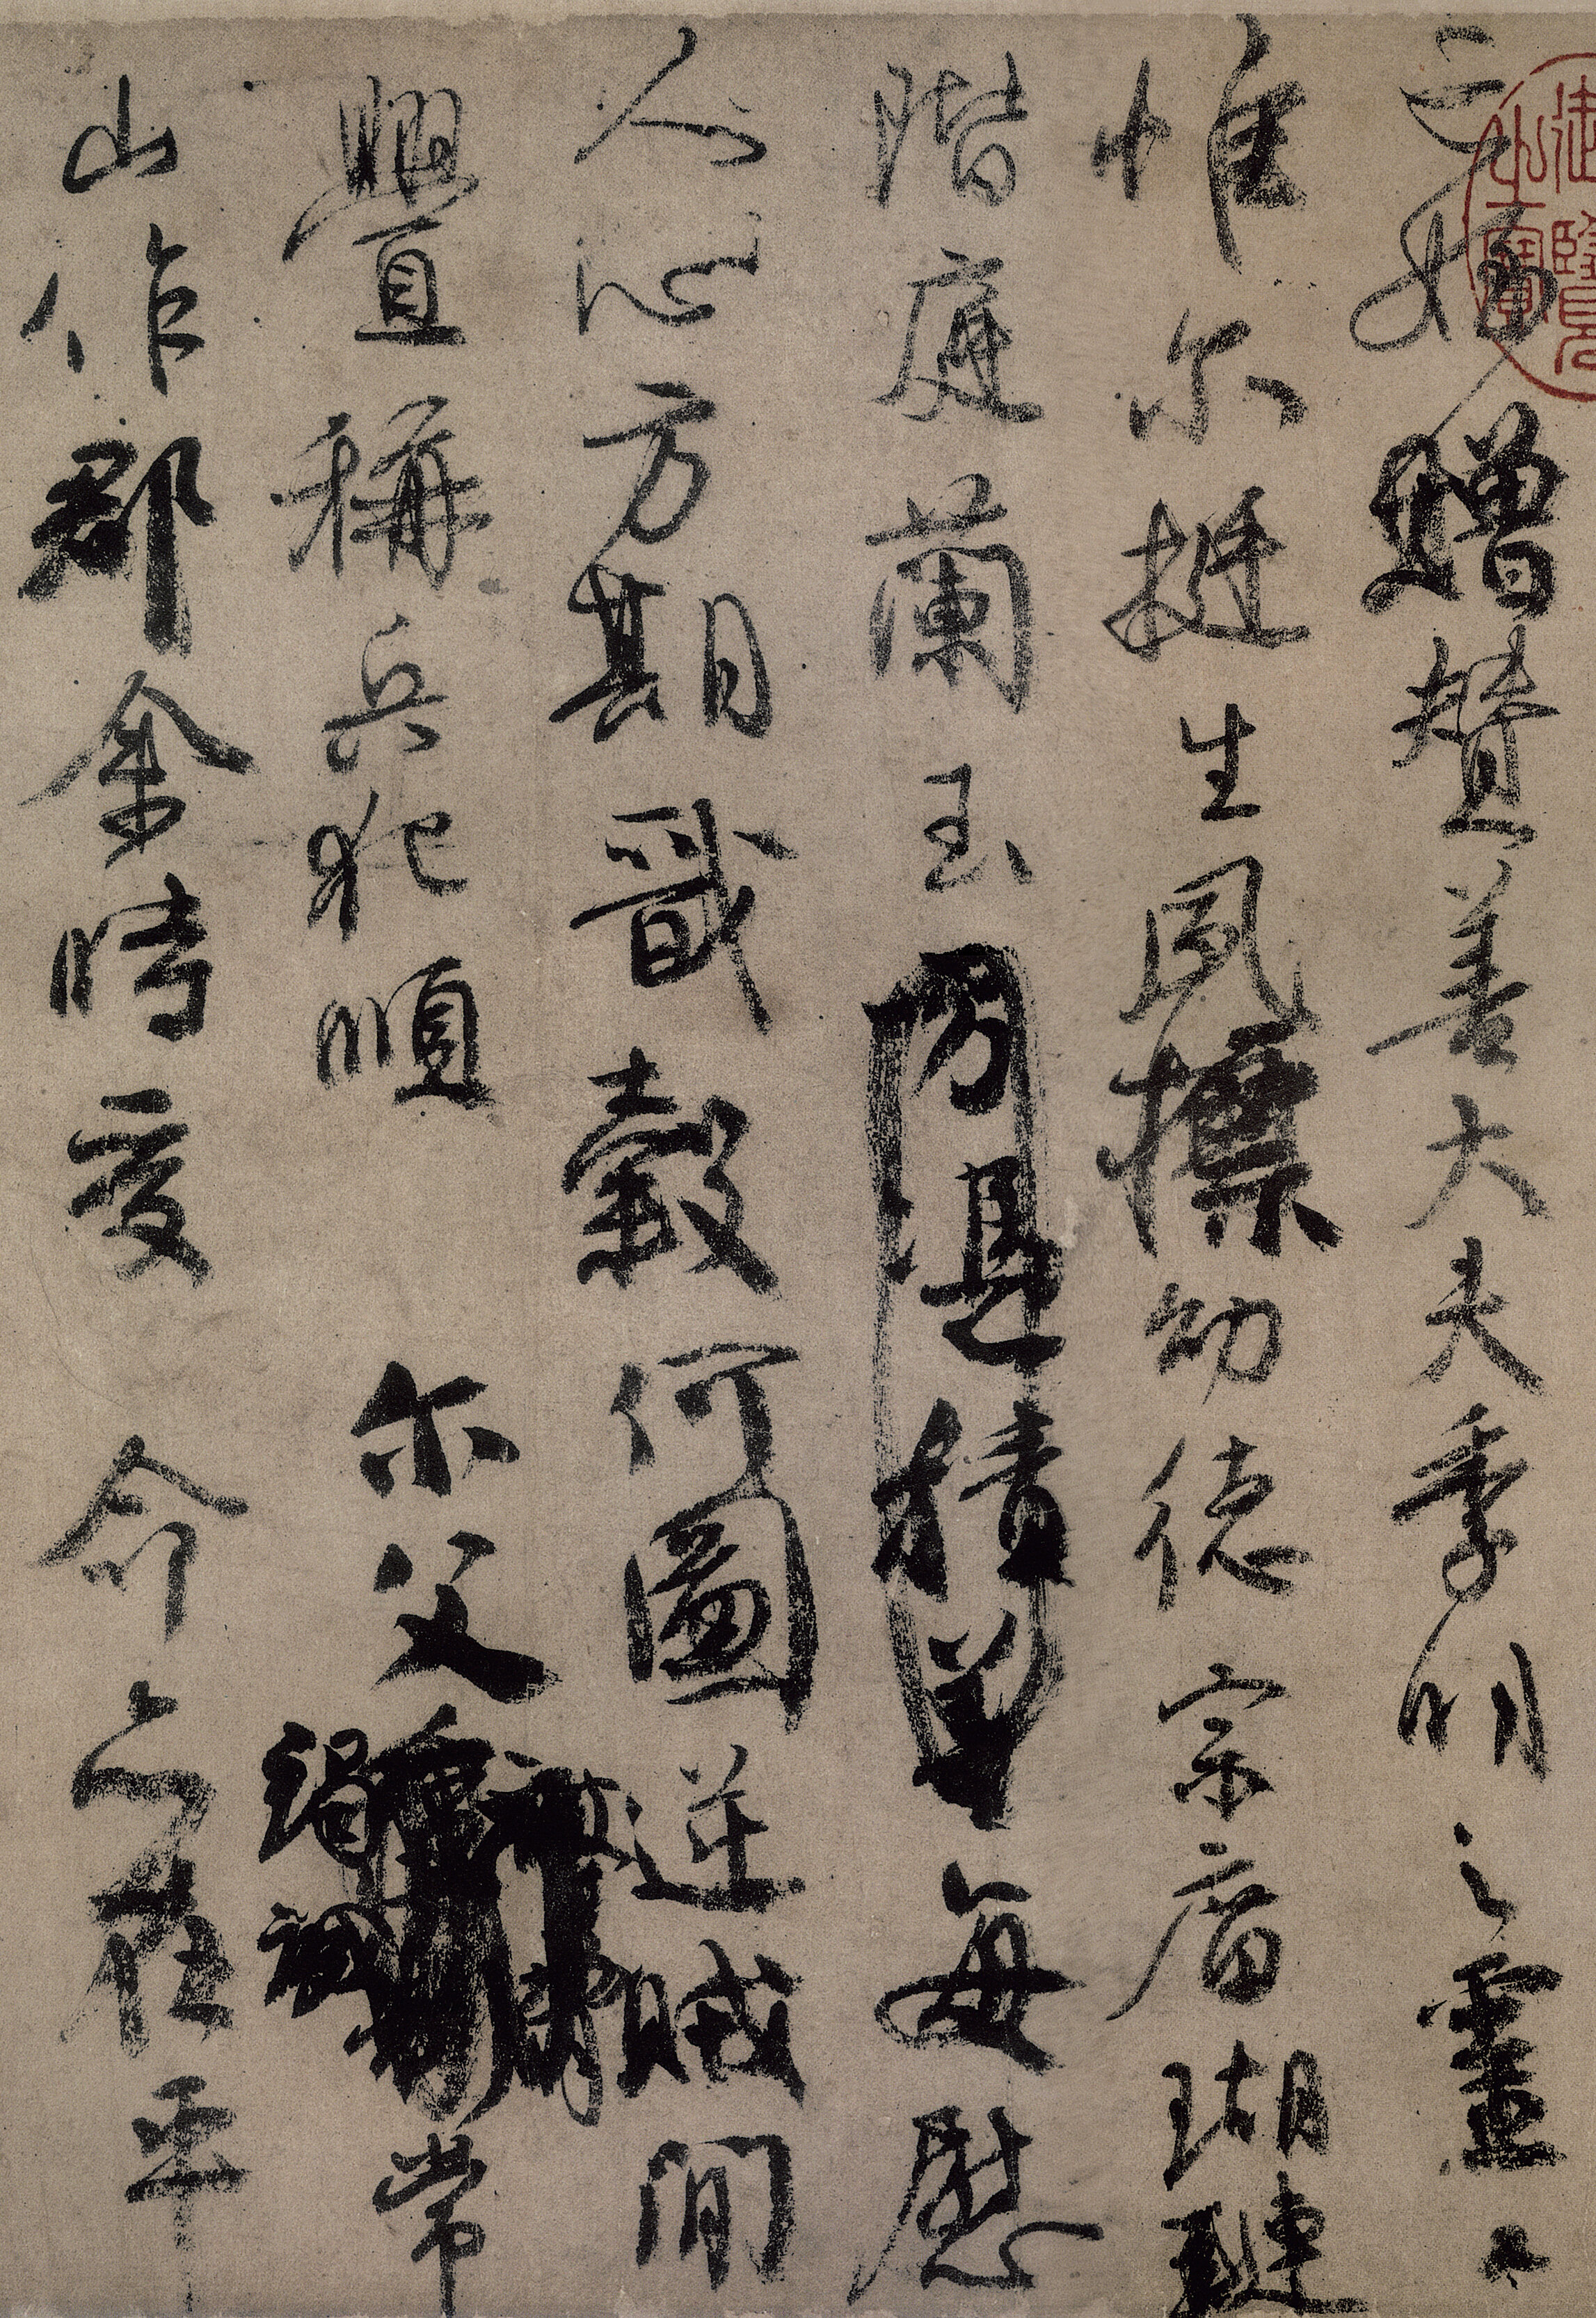 亡姪贈贊善大夫季明之靈曰
惟尔挺生夙標幼德宗廟瑚璉
階庭蘭玉方憑積善每慰
人心方期戩穀何圖逆賊間
釁稱兵犯順尔父竭誠常
山作郡余時受命亦在平